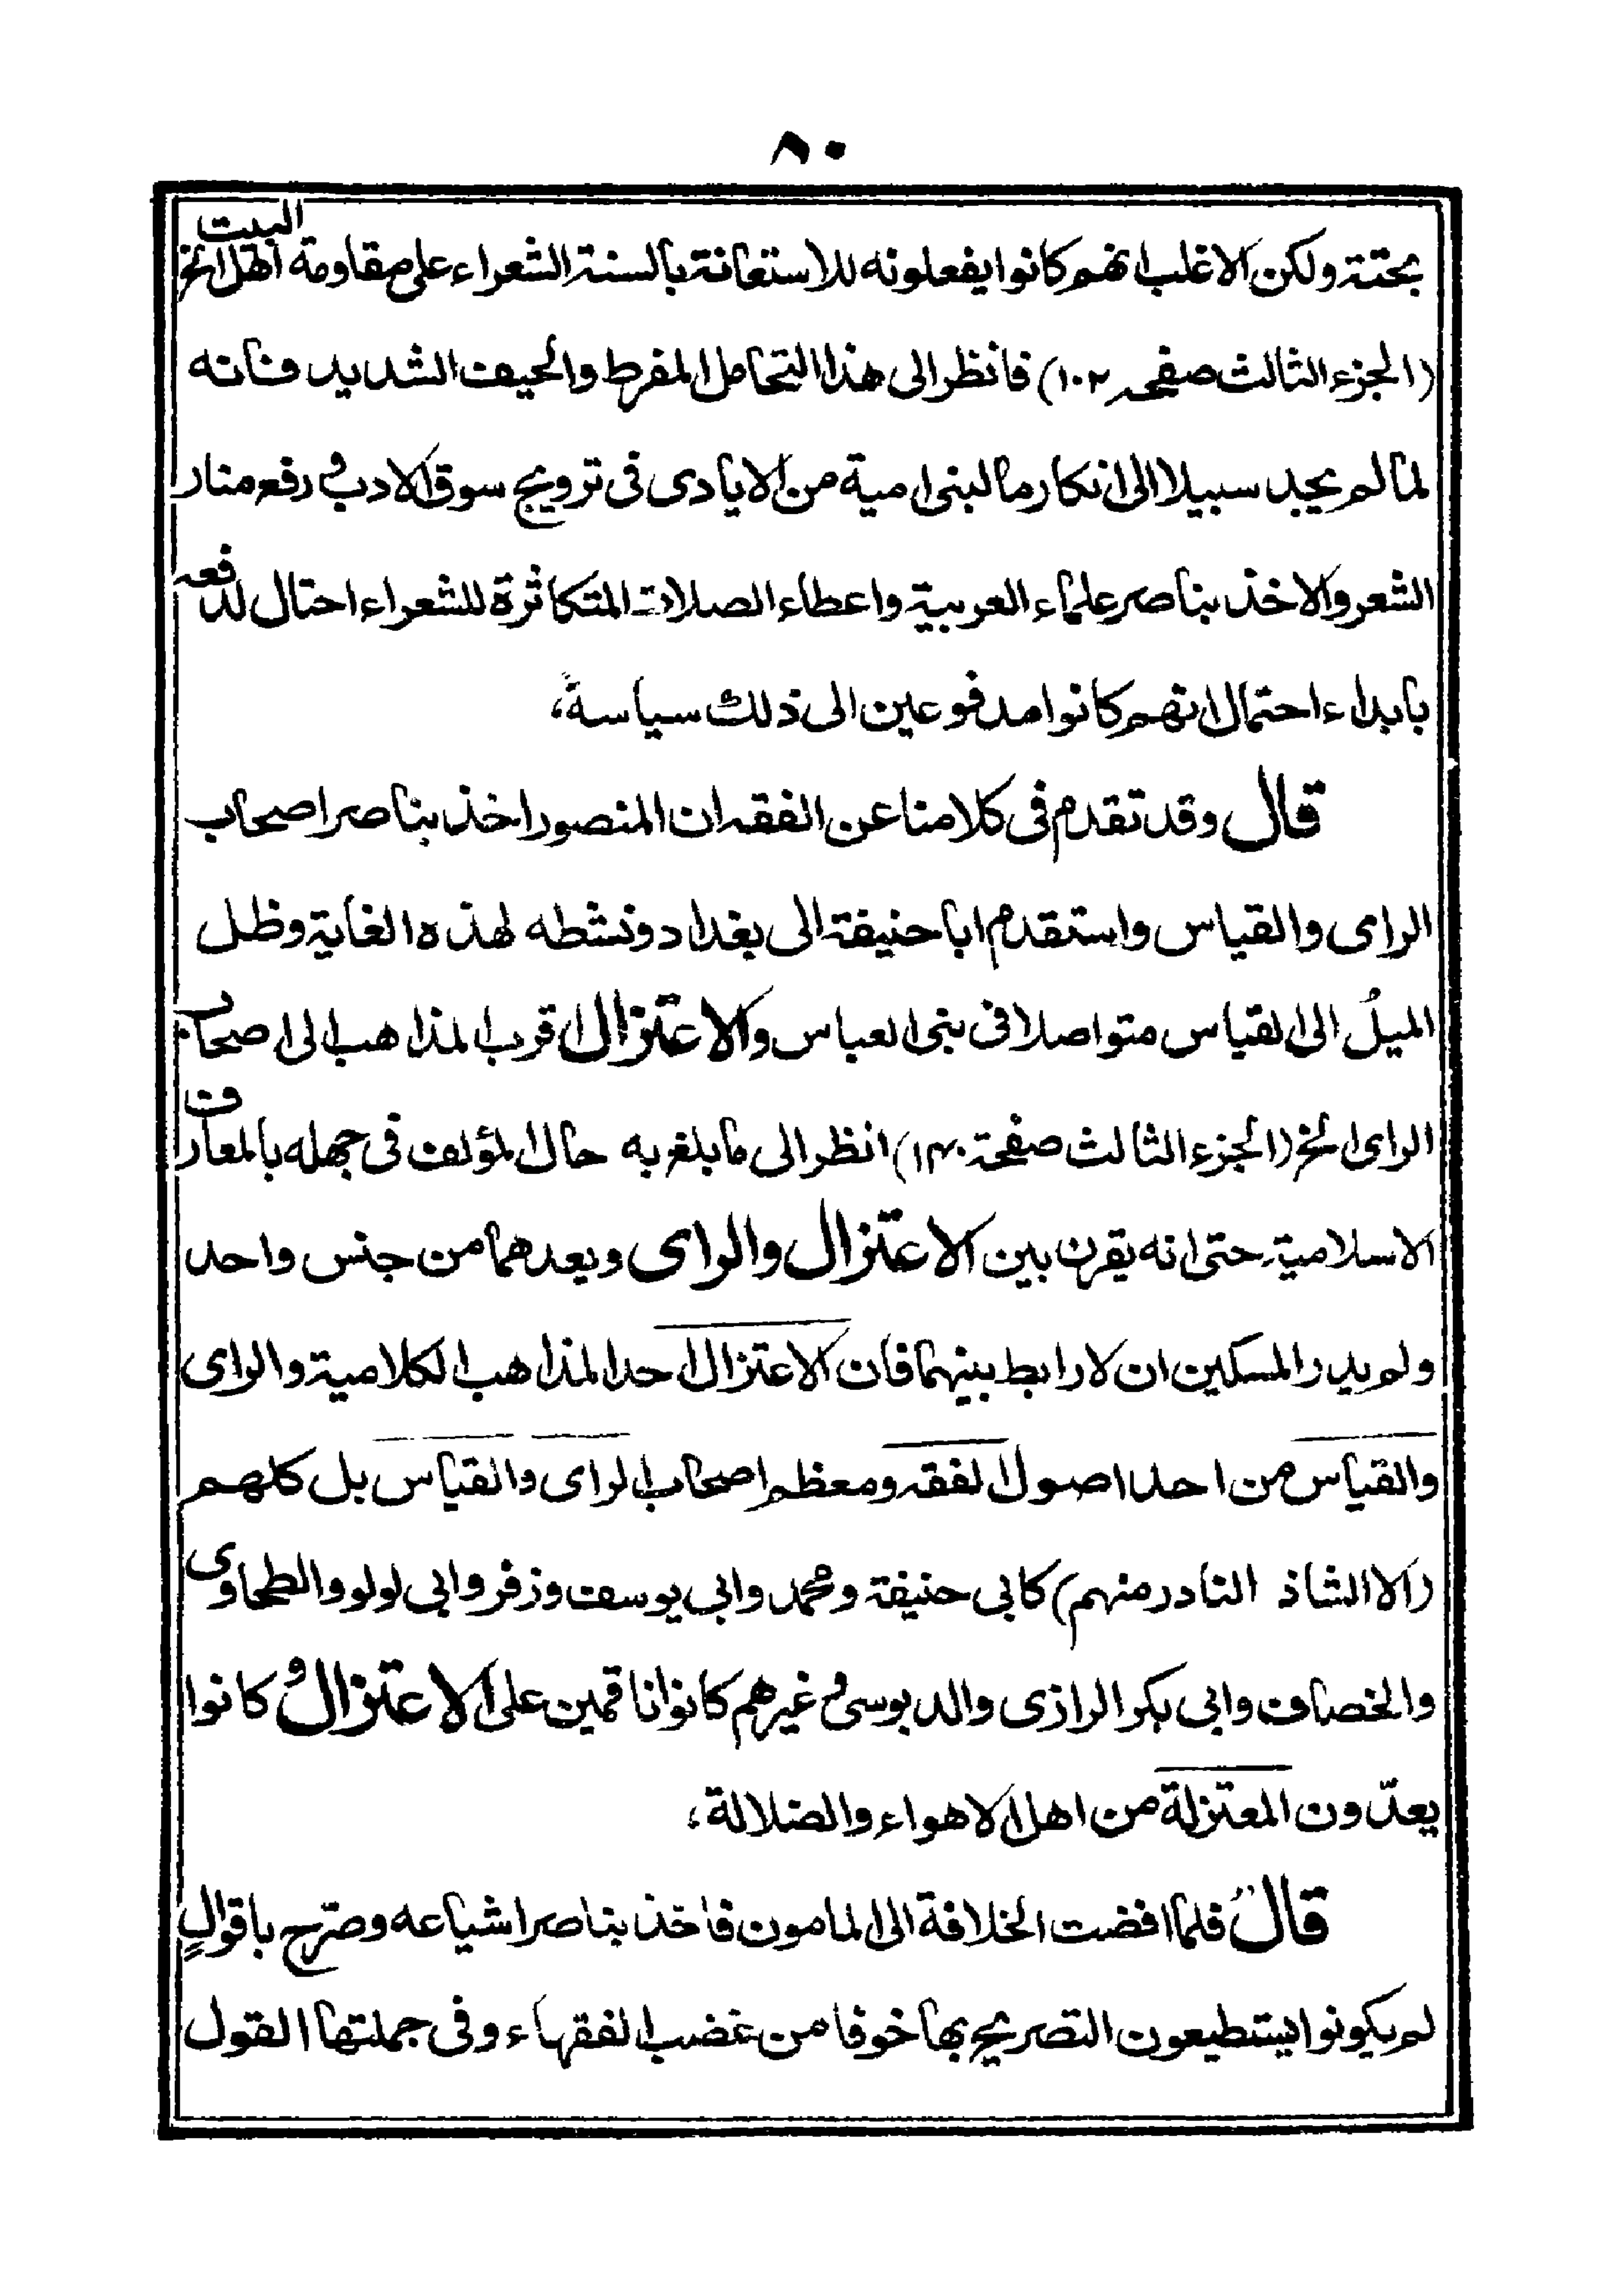 ٨٠
بحتتة ولكن الاغلب انهم كانوا يفعلونه للاستعانة بالسنة الشعراء على مقاومة اهل البيت الخ
(الجزء الثالث صفحه ١٠٢) فانظر الى هذا التحامل المفرط والحيف الشديد فانه
لما لم يجد سبيلا الى انكار ما لبنى امية من الايادى فى ترويج سوق الادب و رفع منار
الشعر والاخذ بناصر علماء العربية واعطاء الصلات المتكاثرة للشعراء احتال لدفعه
بابداء احتمال انهم كانوا مدفوعين الى ذلك سياسة،
قال وقد تقدم فى كلامنا عن الفقه ان المنصور اخذ بناصر اصحاب
الراى والقياس واستقدم ابا حنيفة الى بغداد ونشطه لهذه الغاية وظل
الميلُ الى القياس متواصلا فى بنى العباس والاعتزال اقرب المذاهب الى اصحاب
الراى الخ (الجزء الثالث صفحة ١٤٠) انظر الى ما بلغ به حال المؤلف فى جهله بالمعارف
الاسلامية حتى انه يقرن بين الاعتزال والراى ويعدهما من جنس واحد
ولم يدر المسكين ان لا رابط بينهما فان الاعتزال احد المذاهب الكلامية والراى
والقياس من احد اصول الفقه ومعظم اصحاب الراى والقياس بل كلهم
(الا الشاذ النادر منهم) كابى حنيفة ومحمد وابى يوسف وزفر وابى لولو والطحاوى
والخصاف وابى بكر الرازى والدبوسى و غيرهم كانوا ناقمين على الاعتزال و كانوا
يعدّون المعتزلة من اهل الاهواء والضلالة،
قال فلما افضت الخلافة الى المامون فاخذ بناصر اشياعه وصرّح باقوالٍ
لم يكونوا يستطيعون التصريح بها خوفا من غضب الفقهاء وفى جملتها القول